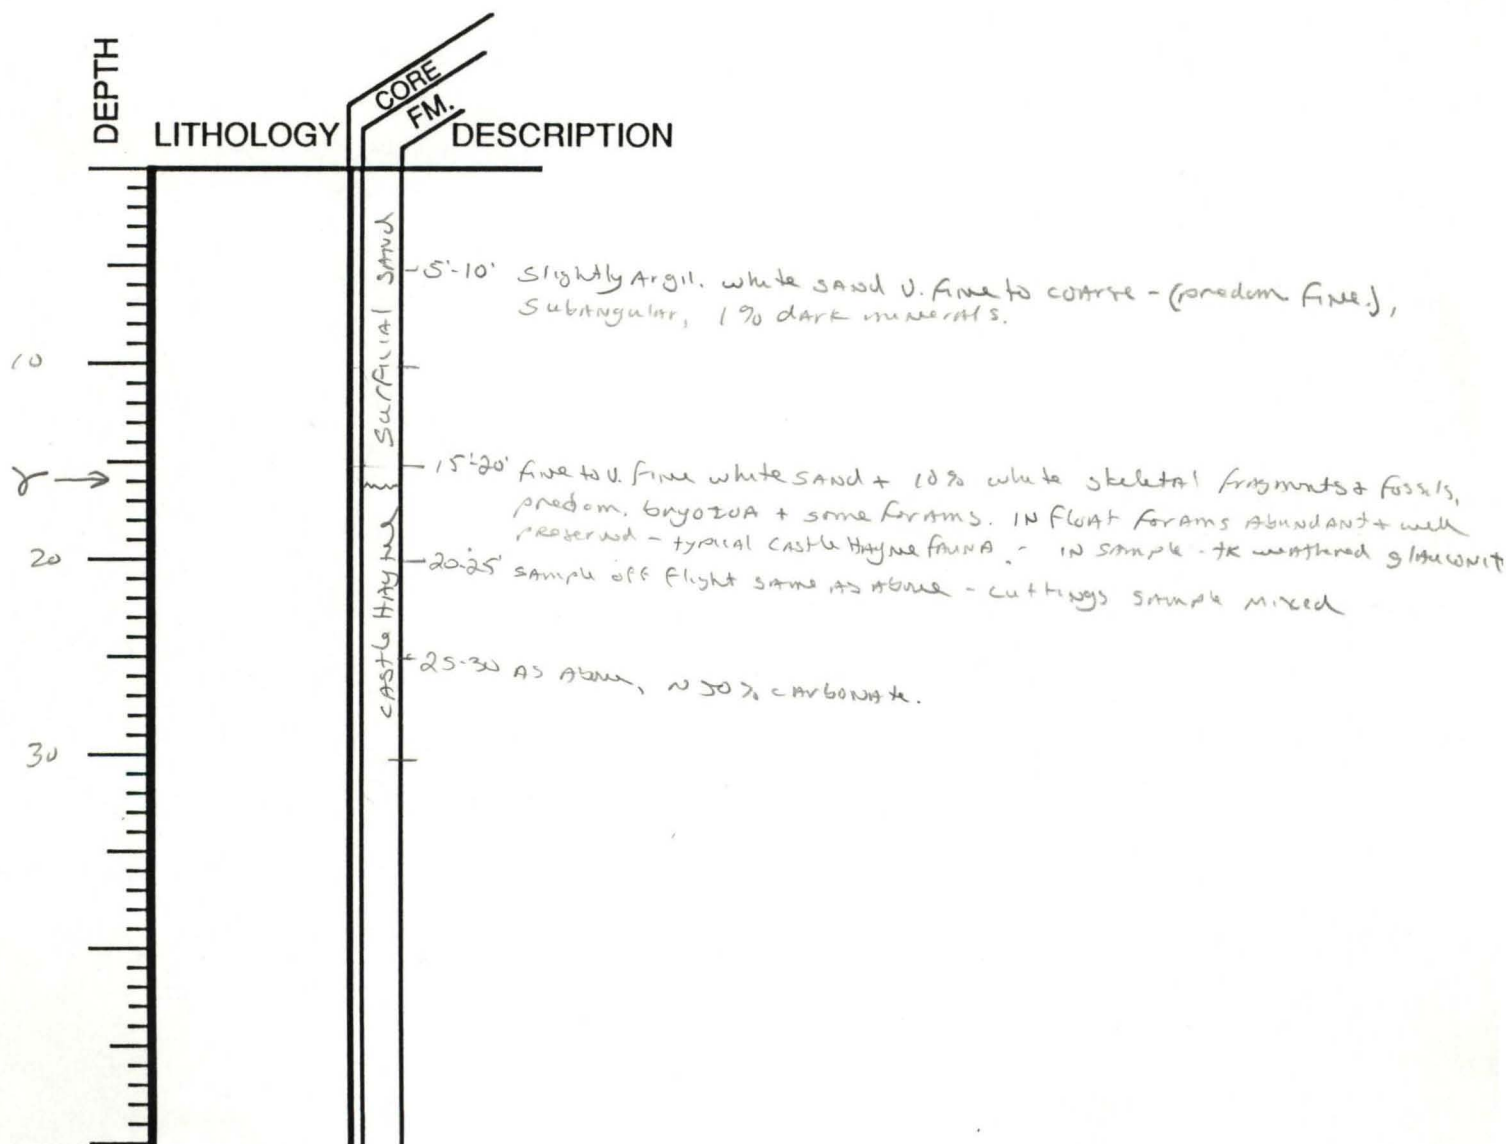 DEPTH
LITHOLOGY
CORE
FM.
DESCRIPTION
SurFICIAl SAND
5'-10' Slightly Argil. white SAND V. fine to coArse - (predom fine.),
SubANgulAr, 1% dArk minerAls.
10
15'-20' fine to V. fine white SAND + 10% white skeletAl frAgments + fossils,
predom. bryozoA + some forAms. IN floAt forAms AbuNdANt + well
preserved - typical CAstle HAyne fAuNA - IN sAmple - tr weAthered glAucoNit
γ →
20
20-25' SAmple off flight sAme As Above - cuttings sAmple mixed
CAstle HAyne
25-30 AS Above, ~ 50% cArboNAte.
30